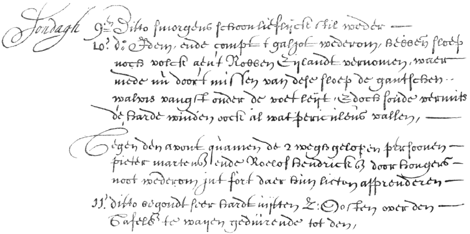 Sondagh 9en Ditto smorgens schoon lieffelijck stil weder
10en do Idem, ende compt t galjot wederom, hebben sloep
noch volck aent Robben Eijlandt vernomen, waer
mede nu door 't missen van dese sloep de gantschen
walvis vangst onder de voet leijt, Edoch soude vermits
de harde winden oock al wat periculeus vallen,
Tegen den avont quamen de 2 wegh gelopen persoonen
pieter martensz ende Roeloff hendricksz door hongers
noot wederom int fort daer hun lieten apprenderen
11en ditto begondt seer hardt uijtten Z: Oosten over den
Tafelb: te waijen gedurende tot den,